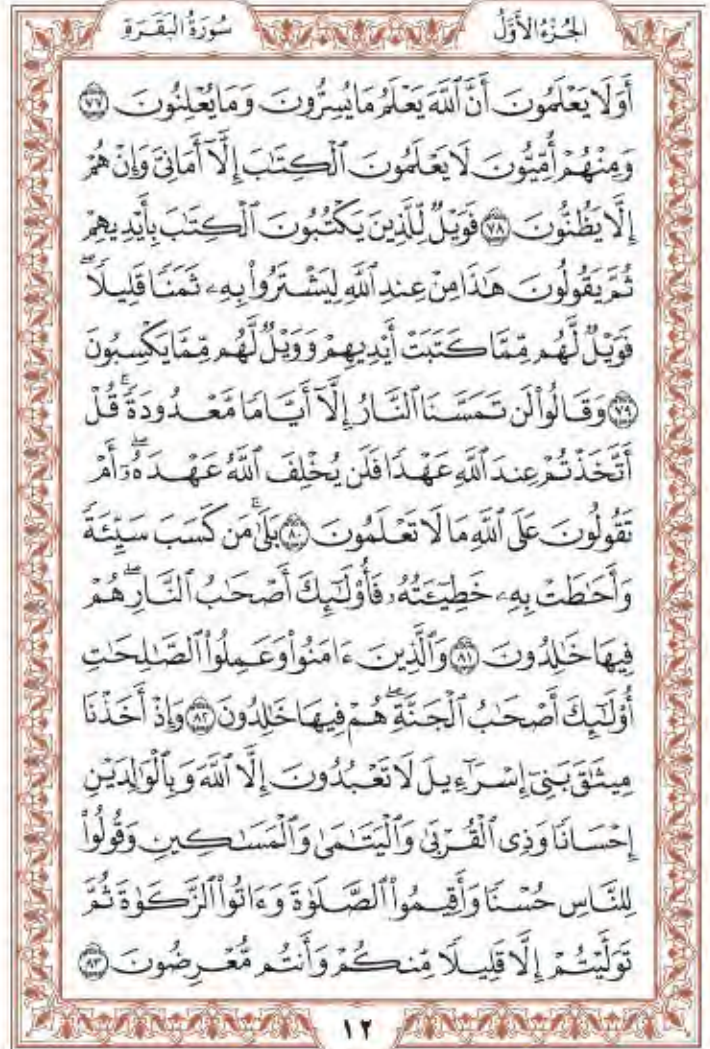 الجُزْءُ الأَوَّلُ سُورَةُ البَقَرَةِ
أَوَلَا يَعْلَمُونَ أَنَّ ٱللَّهَ يَعْلَمُ مَا يُسِرُّونَ وَمَا يُعْلِنُونَ ٧٧
وَمِنْهُمْ أُمِّيُّونَ لَا يَعْلَمُونَ ٱلْكِتَٰبَ إِلَّآ أَمَانِىَّ وَإِنْ هُمْ
إِلَّا يَظُنُّونَ ٧٨ فَوَيْلٌ لِّلَّذِينَ يَكْتُبُونَ ٱلْكِتَٰبَ بِأَيْدِيهِمْ
ثُمَّ يَقُولُونَ هَٰذَا مِنْ عِندِ ٱللَّهِ لِيَشْتَرُوا۟ بِهِۦ ثَمَنًا قَلِيلًاۖ
فَوَيْلٌ لَّهُم مِّمَّا كَتَبَتْ أَيْدِيهِمْ وَوَيْلٌ لَّهُم مِّمَّا يَكْسِبُونَ
٧٩ وَقَالُوا۟ لَن تَمَسَّنَا ٱلنَّارُ إِلَّآ أَيَّامًا مَّعْدُودَةًۚ قُلْ
أَتَّخَذْتُمْ عِندَ ٱللَّهِ عَهْدًا فَلَن يُخْلِفَ ٱللَّهُ عَهْدَهُۥٓۖ أَمْ
تَقُولُونَ عَلَى ٱللَّهِ مَا لَا تَعْلَمُونَ ٨٠ بَلَىٰۚ مَن كَسَبَ سَيِّئَةً
وَأَحَٰطَتْ بِهِۦ خَطِيٓـَٔتُهُۥ فَأُو۟لَٰٓئِكَ أَصْحَٰبُ ٱلنَّارِۖ هُمْ
فِيهَا خَٰلِدُونَ ٨١ وَٱلَّذِينَ ءَامَنُوا۟ وَعَمِلُوا۟ ٱلصَّٰلِحَٰتِ
أُو۟لَٰٓئِكَ أَصْحَٰبُ ٱلْجَنَّةِۖ هُمْ فِيهَا خَٰلِدُونَ ٨٢ وَإِذْ أَخَذْنَا
مِيثَٰقَ بَنِىٓ إِسْرَٰٓءِيلَ لَا تَعْبُدُونَ إِلَّا ٱللَّهَ وَبِٱلْوَٰلِدَيْنِ
إِحْسَانًا وَذِى ٱلْقُرْبَىٰ وَٱلْيَتَٰمَىٰ وَٱلْمَسَٰكِينِ وَقُولُوا۟
لِلنَّاسِ حُسْنًا وَأَقِيمُوا۟ ٱلصَّلَوٰةَ وَءَاتُوا۟ ٱلزَّكَوٰةَ ثُمَّ
تَوَلَّيْتُمْ إِلَّا قَلِيلًا مِّنكُمْ وَأَنتُم مُّعْرِضُونَ ٨٣
١٢